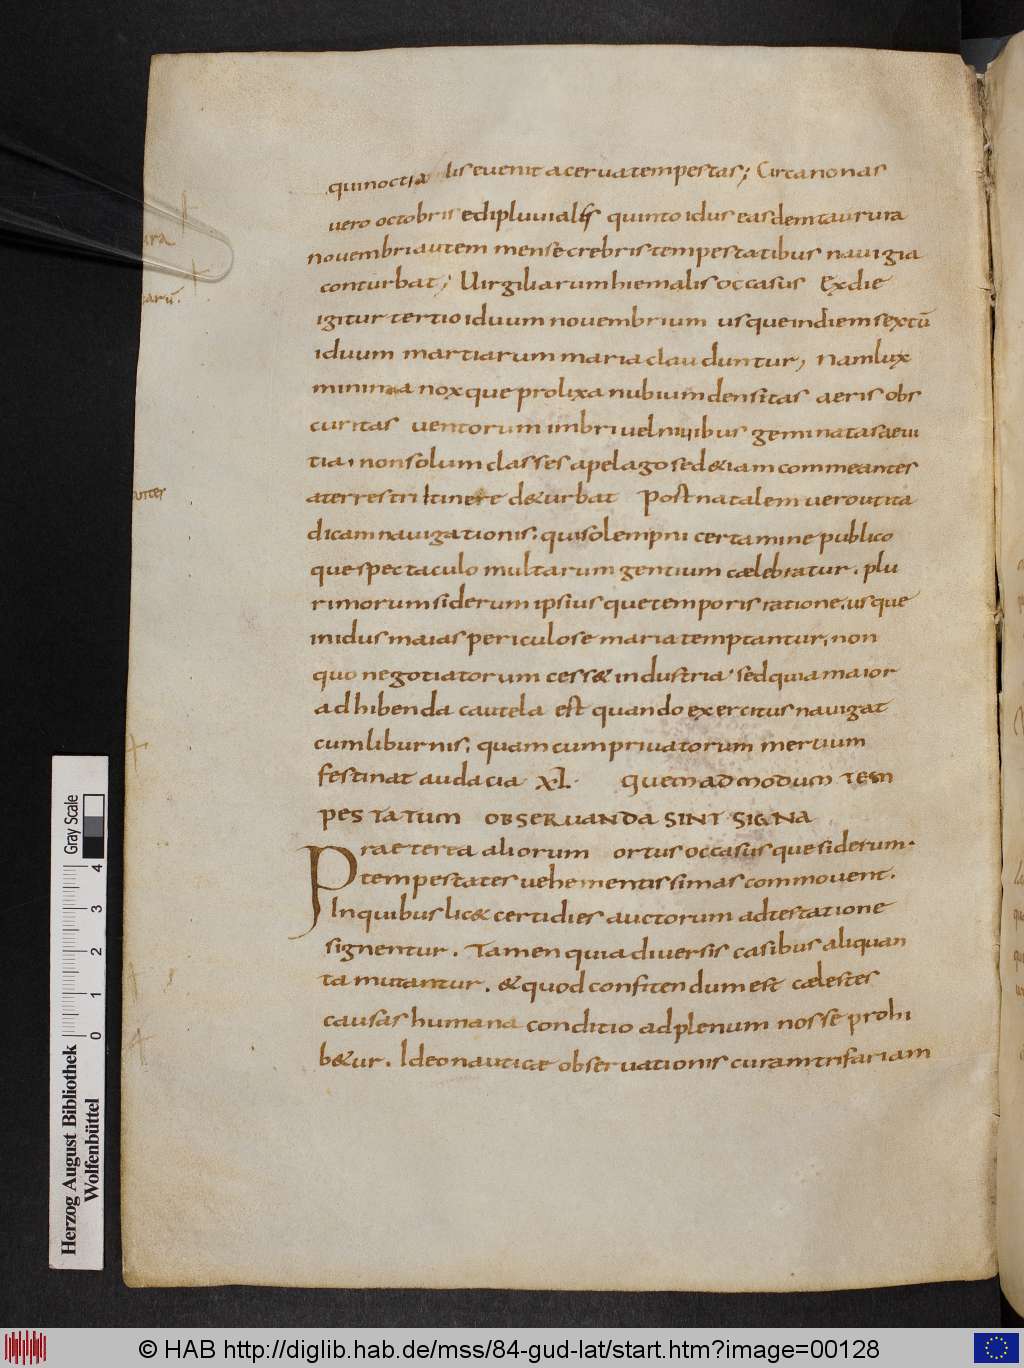 quinoctia lis euenit aceruatempestas; Circanonas
uero octobris edi pluuiales quinto idus easdem taurura
nouembri autem mense crebris tempestatibus nauigia
conturbat; Uirgiliarum hiemalis occasus Ex die
igitur tertio iduum nouembrium usque in diem sextū
iduum martiarum maria clauduntur, Nam lux
minima noxque prolixa nubium densitas aeris obs
curitas uentorum imbri uel niuibus geminata saeui
tia, non solum classes a pelago sed &iam commeantes
a terrestri Itinere d&urbat Post natalem uero ut ita
dicam nauigationis. qui solempni certamine publico
que spectaculo multarum gentium cælebratur. plu
rimorum siderum ipsius que temporis ratione. usque
in idus maias periculose maria temptantur, non
quo negotiatorum cess& industria. sed quia maior
adhibenda cautela est quando exercitus nauigat
cum liburnis. quam cum priuatorum mertium
festinat audacia XL. Quemadmodum tem
pestatum OBSERUANDA SINT SIGNA
Praeterea aliorum ortus occasus que siderum.
tempestates uehementissimas commouent.
In quibus lic& certi dies auctorum adtestatione
signentur. Tamen quia diuersis casibus aliquan
ta mutantur. & quod confitendum est cælestes
causas humana conditio ad plenum nosse prohi
b&ur. Ideo nauticæ obseruationis curam trifariam
Herzog August Bibliothek
Wolfenbüttel
0 1 2 3 4
Gray Scale
© HAB http://diglib.hab.de/mss/84-gud-lat/start.htm?image=00128